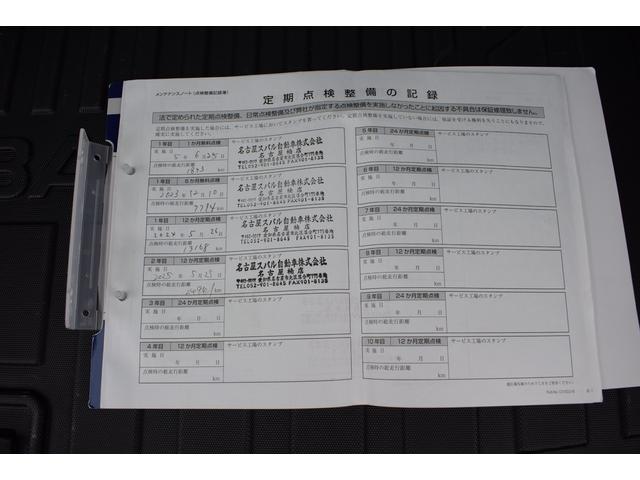 メンテナンスノート(点検整備記録簿)
定期点検整備の記録
法で定められた定期点検整備、日常点検整備及び弊社が指定する点検整備を実施しなかったことに起因する不具合は保証修理致しません。
1年目 1か月無料点検 サービス工場のスタンプ
実施日
5年6月25日
点検時の総走行距離
km
名古屋スバル自動車株式会社
名古屋楠店
TEL052-901-8645 FAX901-8138
1年目 6か月無料点検 サービス工場のスタンプ
実施日
2023年12月10日
点検時の総走行距離
7794 km
名古屋スバル自動車株式会社
名古屋楠店
TEL052-901-8645 FAX901-8138
1年目 12か月定期点検 サービス工場のスタンプ
実施日
2024年5月26日
点検時の総走行距離
13168 km
名古屋スバル自動車株式会社
名古屋楠店
TEL052-901-8645 FAX901-8138
2年目 12か月定期点検 サービス工場のスタンプ
実施日
2025年5月25日
点検時の総走行距離
km
名古屋スバル自動車株式会社
名古屋楠店
TEL052-901-8645 FAX901-8138
3年目 24か月定期点検 サービス工場のスタンプ
実施日
年 月 日
点検時の総走行距離
km
4年目 12か月定期点検 サービス工場のスタンプ
実施日
年 月 日
点検時の総走行距離
km
5年目 24か月定期点検 サービス工場のスタンプ
実施日
年 月 日
点検時の総走行距離
km
6年目 12か月定期点検 サービス工場のスタンプ
実施日
年 月 日
点検時の総走行距離
km
7年目 24か月定期点検 サービス工場のスタンプ
実施日
年 月 日
点検時の総走行距離
km
8年目 12か月定期点検 サービス工場のスタンプ
実施日
年 月 日
点検時の総走行距離
km
9年目 24か月定期点検 サービス工場のスタンプ
実施日
年 月 日
点検時の総走行距離
km
10年目 12か月定期点検 サービス工場のスタンプ
実施日
年 月 日
点検時の総走行距離
km